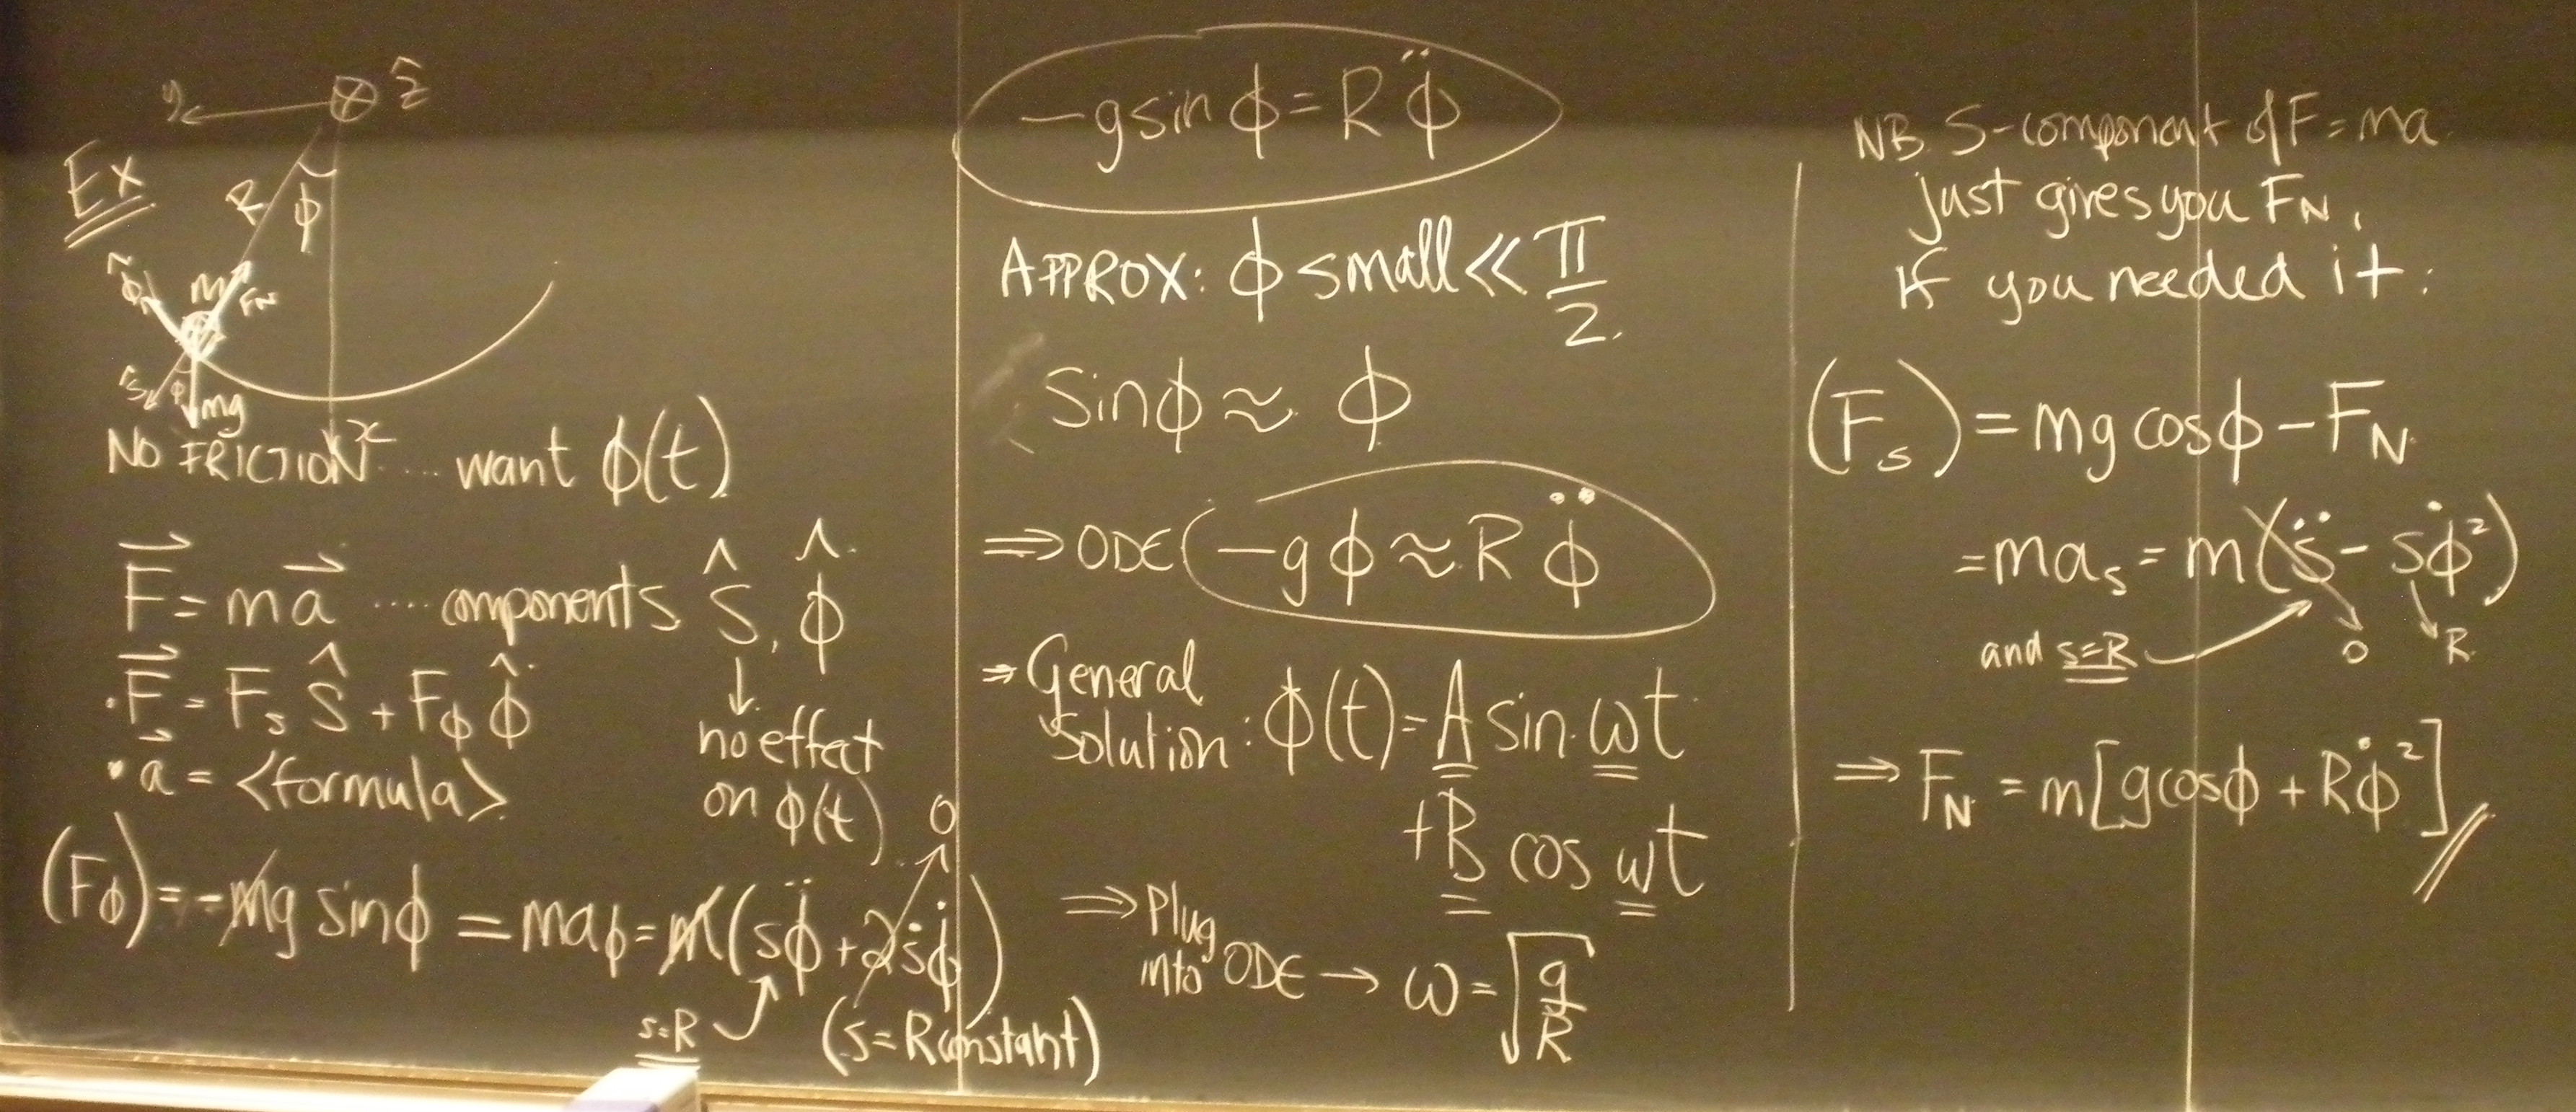 Ex
y
ẑ
R
φ
φ̂
m
F_N
ŝ
φ
mg
x
NO FRICTION .... want φ(t)
F⃗ = ma⃗ .... components ŝ, φ̂
↓
no effect
on φ(t)
• F⃗ = F_s ŝ + F_φ φ̂
• a⃗ = <formula>
(F_φ) = -mg sinφ = ma_φ = m(sφ̈ + 2ṡφ̇)
0
s=R
(s=R constant)
-g sin φ = R φ̈
APPROX: φ small << π/2.
sinφ ≈ φ
⇒ ODE -gφ ≈ R φ̈
⇒ General
Solution: φ(t) = A sin ωt
+ B cos ωt
⇒ Plug
into ODE → ω = √(g/R)
NB. S-component of F=ma
just gives you F_N,
if you needed it:
(F_s) = mg cosφ - F_N
= ma_s = m(s̈ - sφ̇²)
and s=R
0
R
⇒ F_N = m[g cosφ + Rφ̇²] //